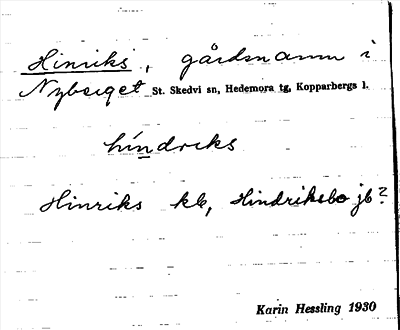 Hinriks, gårdsnamn i
Nyberget St. Skedvi sn, Hedemora tg, Kopparbergs l.
híndriks
Hinriks kb, Hindriksbo jb?
Karin Hessling 1930